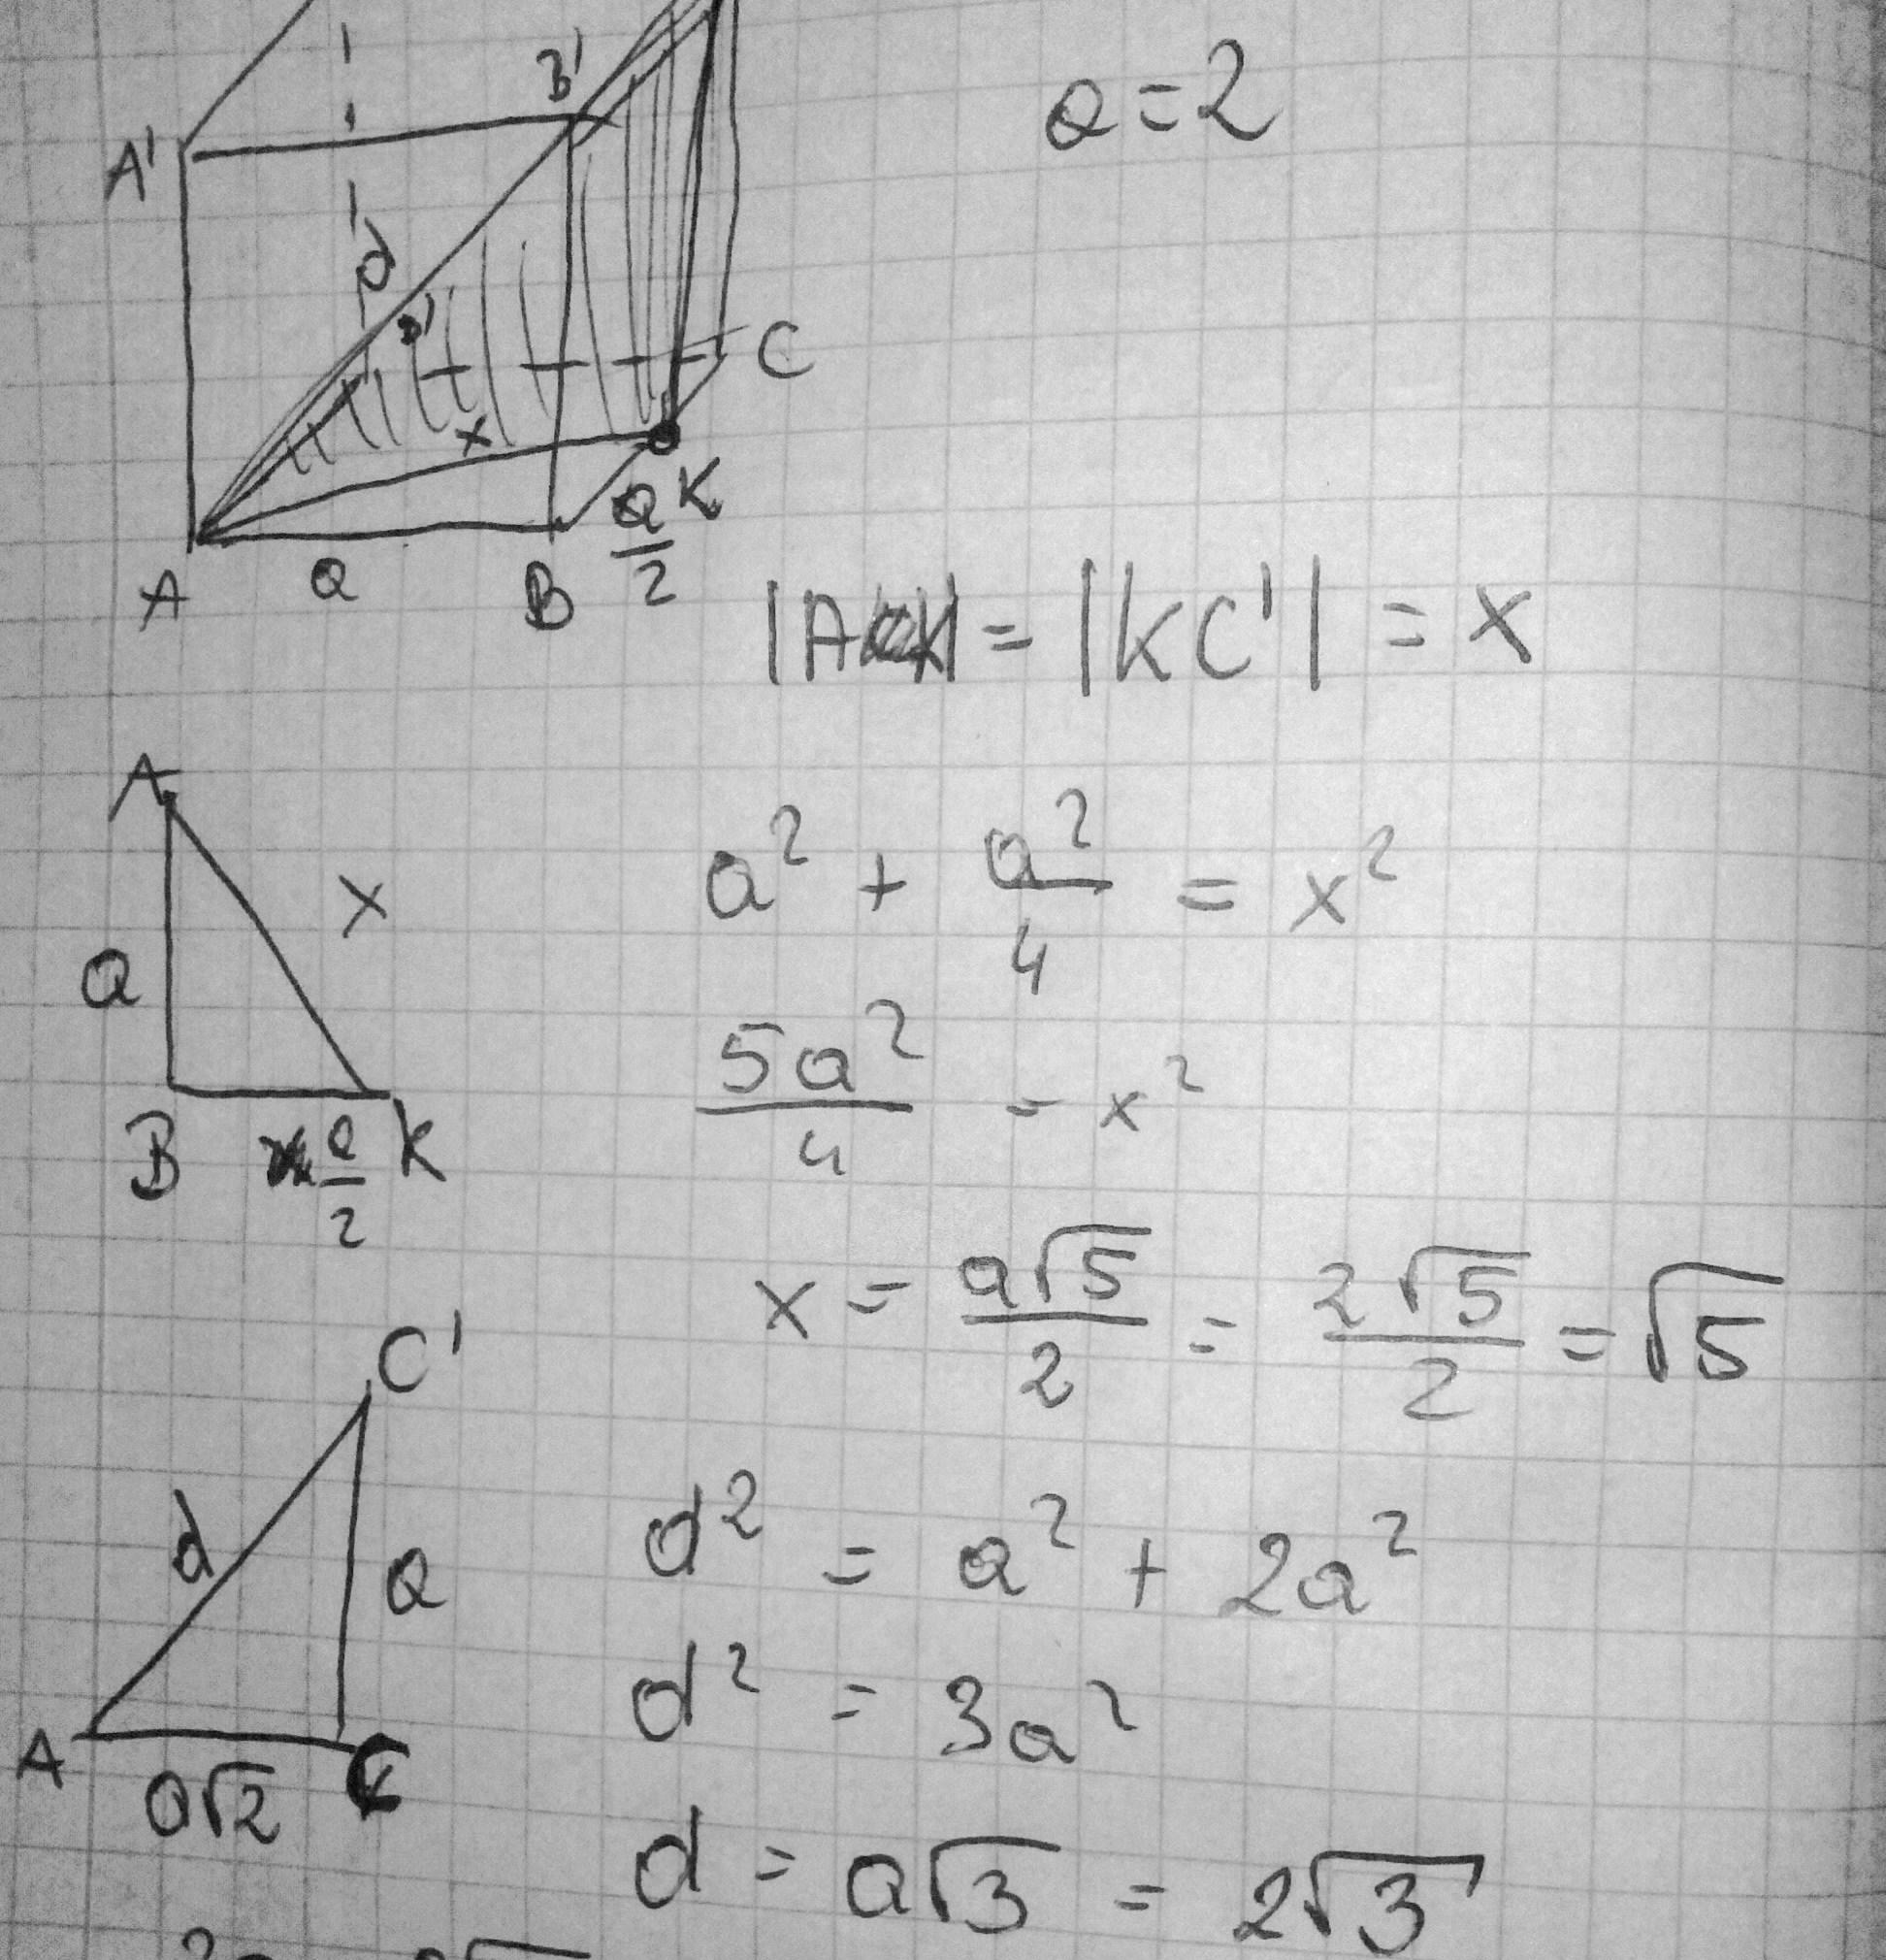 B'
a=2
A'
d
C
x
K
a/2
A a B
|AK| = |KC'| = x
A
x
a
B a/2 K
a² + a²/4 = x²
5a²/4 = x²
x = a√5/2 = 2√5/2 = √5
C'
d
a
A a√2 C
d² = a² + 2a²
d² = 3a²
d = a√3 = 2√3